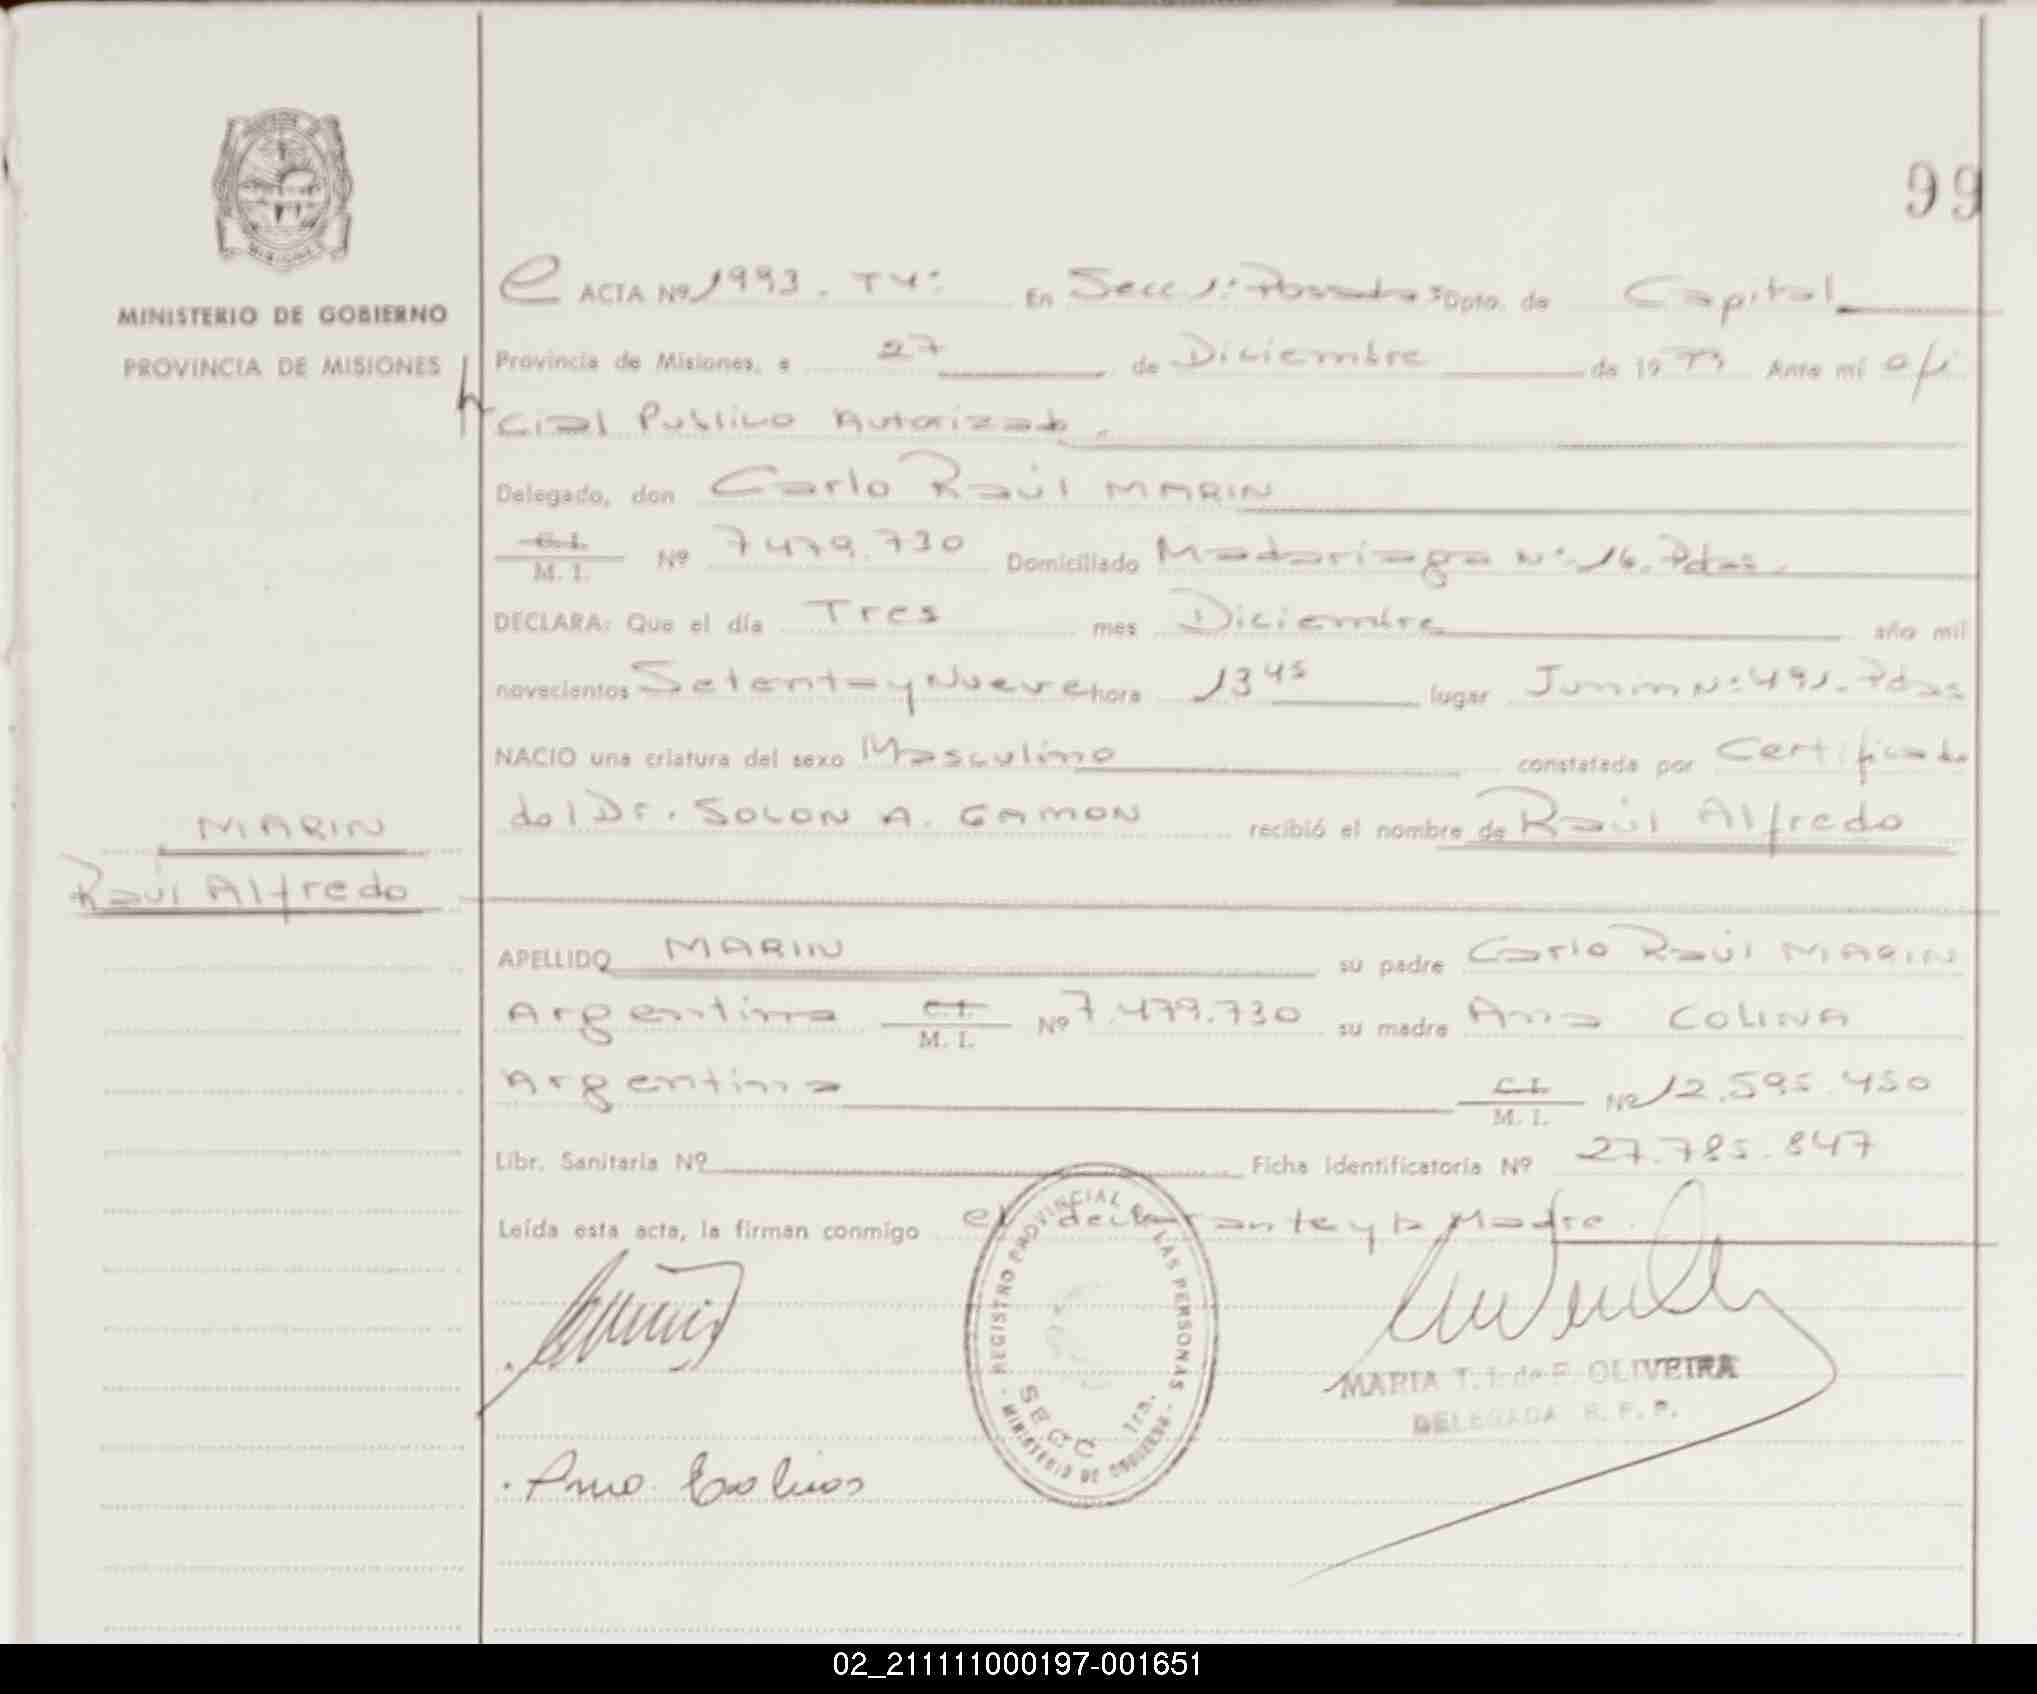 99
MINISTERIO DE GOBIERNO
PROVINCIA DE MISIONES
ACTA Nº 1993. T4: En Secc 1: Posadas Dpto. de Capital
Provincia de Misiones, a 27 de Diciembre de 1979 Ante mí ofi
cial Publico Autorizado.
Delegado, don Carlo Raúl MARIN
C. I. M. I. Nº 7479.730 Domiciliado Madariaga Nº: 16. Pdas.
DECLARA: Que el día Tres mes Diciembre año mil
novecientos Setenta y Nueve hora 13 45 lugar Junin Nº: 491. Pdas
NACIO una criatura del sexo Masculino constatada por Certificado
del Dr. SOLON A. GAMON recibió el nombre de Raúl Alfredo
MARIN
Raúl Alfredo
APELLIDO MARIN su padre Carlo Raúl MARIN
Argentina C. I. M. I. Nº 7.479.730 su madre Ana COLINA
Argentina C. I. M. I. Nº 12.595.450
Libr. Sanitaria Nº Ficha identificatoria Nº 27.785.847
Leída esta acta, la firman conmigo el declarante y la Madre.
REGISTRO PROVINCIAL DE LAS PERSONAS
SECC 1ra.
MINISTERIO DE GOBIERNO
MARIA T. I. de F. OLIVEIRA
DELEGADA R. P. P.
Ana Colina
02_211111000197-001651